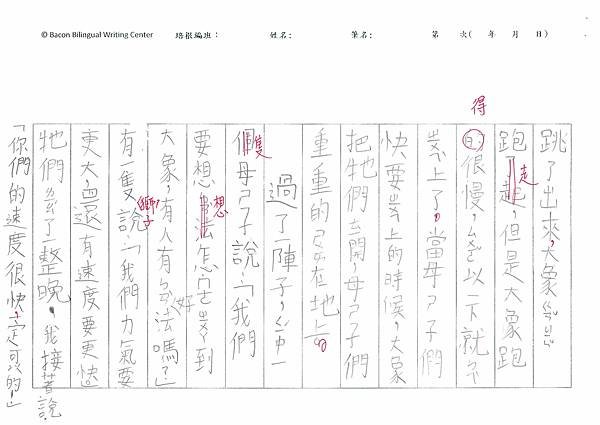 © Bacon Bilingual Writing Center 培根編班： 姓名： 筆名： 第 次( 年 月 日)
跳了出來，大象
跑了起，但是大象跑
走
得
很慢，以一下就
上了，當母ㄕ子們
快要上的時候，大象
把牠們開，母ㄕ子們
重重的在地上。
過了一陣子，中一
個母ㄕ子說：「我們
隻
要想法怎到
想
大象，有人有好法嗎？」
有一隻說：「我們力氣要
獅子
更大，還有速度要更快
牠們了一整晚，我接著說
「你們的速度很快，一定可以的！」